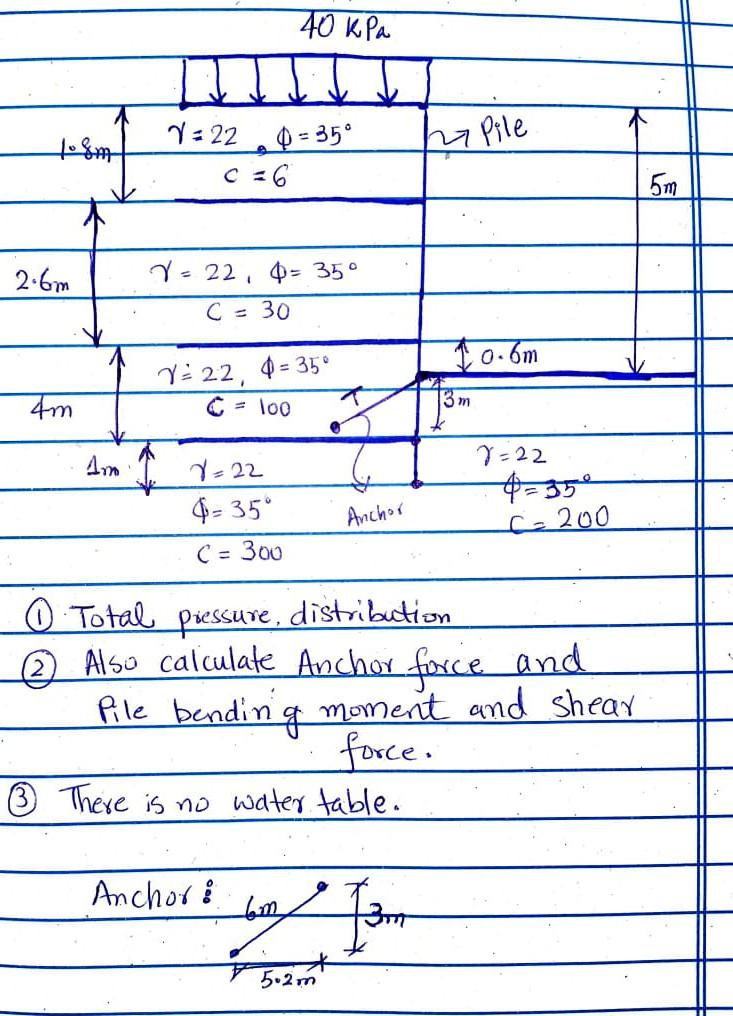 40 KPa
γ = 22 , ϕ = 35°
C = 6
Pile
1.8m
5m
2.6m
γ = 22, ϕ = 35°
C = 30
0.6m
γ = 22, ϕ = 35°
C = 100
T
3m
4m
1m
γ = 22
ϕ = 35°
C = 300
Anchor
γ = 22
ϕ = 35°
C = 200
① Total pressure, distribution
② Also calculate Anchor force and
Pile bending moment and shear
force.
③ There is no water table.
Anchor :
6m
3m
5.2m